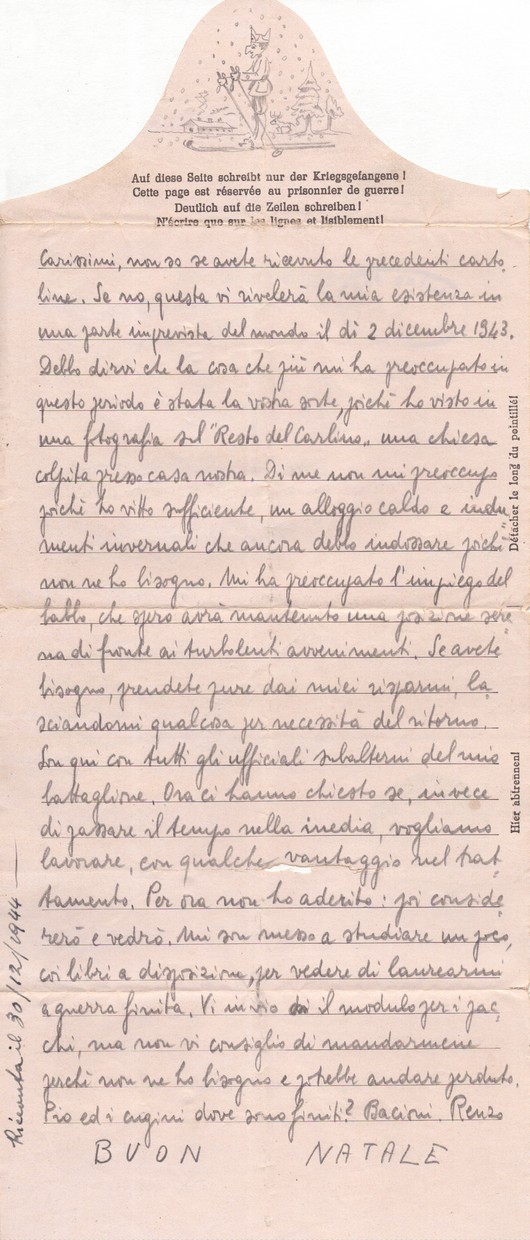 Auf diese Seite schreibt nur der Kriegsgefangene!
Cette page est réservée au prisonnier de guerre!
Deutlich auf die Zeilen schreiben!
N'écrire que sur les lignes et lisiblement!
Carissimi, non so se avete ricevuto le precedenti carto
line. Se no, questa vi rivelerà la mia esistenza in
una parte imprevista del mondo il dì 2 dicembre 1943.
Debbo dirvi che la cosa che più mi ha preoccupato in
questo periodo è stata la vostra sorte, poichè ho visto in
una fotografia sul "Resto del Carlino„ una chiesa
colpita presso casa nostra. Di me non mi preoccupo
poichè ho vitto sufficiente, un alloggio caldo e indu
menti invernali che ancora debbo indossare poichè
non ne ho bisogno. Mi ha preoccupato l'impiego del
babbo, che spero avrà mantenuto una posizione sere
na di fronte ai turbolenti avvenimenti. Se avete
bisogno, prendete pure dai miei risparmi, la
sciandomi qualcosa per necessità del ritorno.
Son qui con tutti gli ufficiali subalterni del mio
battaglione. Ora ci hanno chiesto se, invece
di passare il tempo nella inedia, vogliamo
lavorare, con qualche vantaggio nel trat
tamento. Per ora non ho aderito: poi conside
rerò e vedrò. Mi son messo a studiare un poco,
coi libri a disposizione, per vedere di laurearmi
a guerra finita. Vi invio il modulo per i pac
chi, ma non vi consiglio di mandarmene
perchè non ne ho bisogno e potrebbe andare perduto.
Pio ed i cugini dove sono finiti? Bacioni. Renzo
BUON NATALE
Ricevuta il 30/12/1944
Détacher le long du pointillé!
Hier abtrennen!